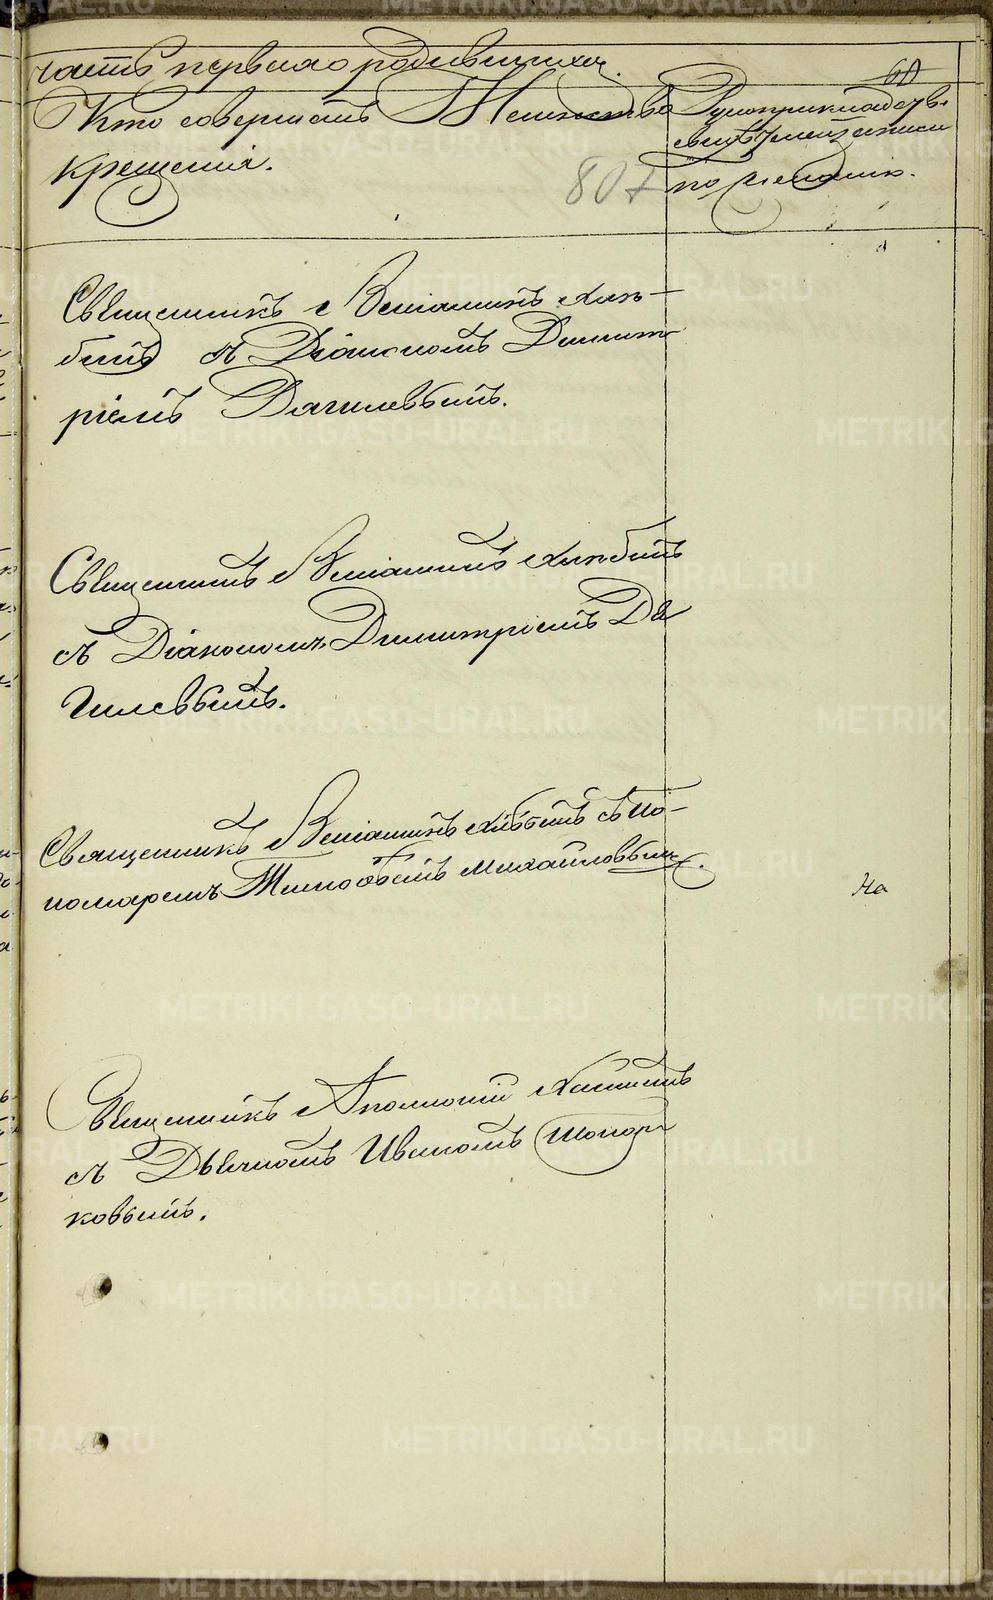 часть первая о родившихся.
60
Кто совершалъ Таинство
крещенія.
807
Рукоприкладств.
свид. записи
по желанію.
Священникъ Веніаминъ
съ Діакономъ Димит
ріемъ Дягилевымъ.
Священникъ Веніаминъ
съ Діакономъ Димитріемъ Дя
гилевымъ.
Священникъ Веніаминъ съ по-
номаремъ Тимофеемъ Михайловымъ.
На
Священникъ Аполлоній
съ Дьячкомъ Иваномъ Топор
ковымъ.
METRIKI.GASO-URAL.RU